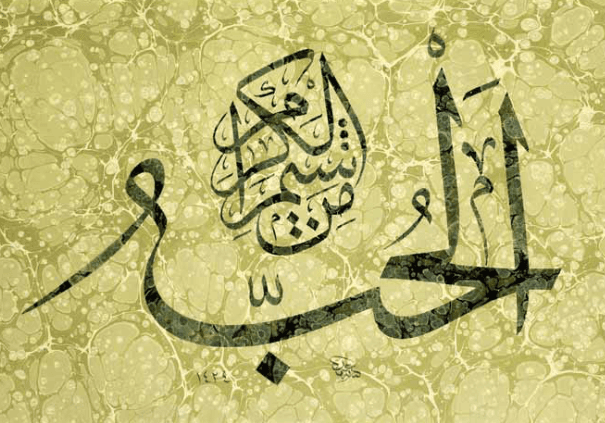 الحُبّ
مِنْ شيم الكرام
١٤٢٤